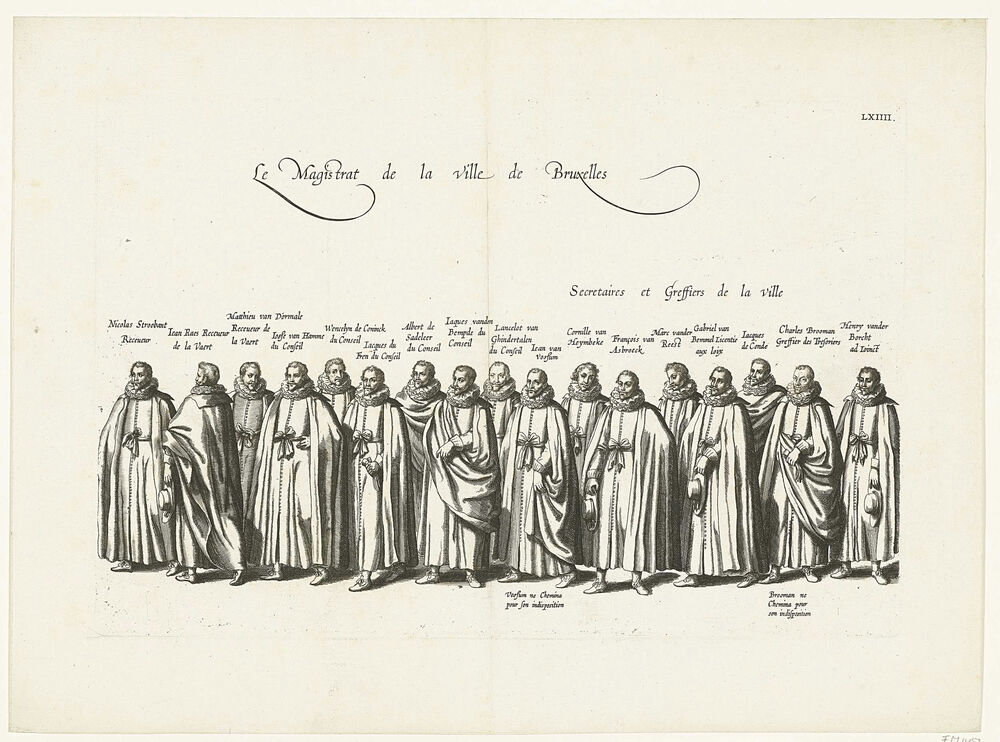 LXIIII.
Le Magistrat de la Ville de Bruxelles
Secretaires et Greffiers de la Ville
Nicolas Stroobant
Receveur
Iean Raes Receveur
de la Vaert
Matthieu van Dormale
Receveur de
la Vaert
Iosse van Hamme
du Conseil
Wencelyn de Coninck
du Conseil
Iacques du
Fren du Conseil
Albert de
Sadeleer
du Conseil
Iaques vanden
Bempde du
Conseil
Lancelot van
Ghindertalen
du Conseil
Iean van
Voorsum
Cornille van
Heymbeke
François van
Asbroeck
Marc vander
Reest
Gabriel van
Bemmel Licentie
aux loix
Iacques
de Conde
Charles Brooman
Greffier des Thresoriers
Henry vander
Borcht
ad Ioinct
Voorsum ne Chemina
pour son indisposition
Brooman ne
Chemina pour
son indisposition